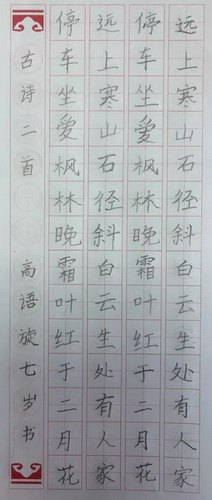 远上寒山石径斜白云生处有人家
停车坐愛枫林晚霜叶红于二月花
远上寒山石径斜白云生处有人家
停车坐愛枫林晚霜叶红于二月花
古诗二首 高语旋七岁书